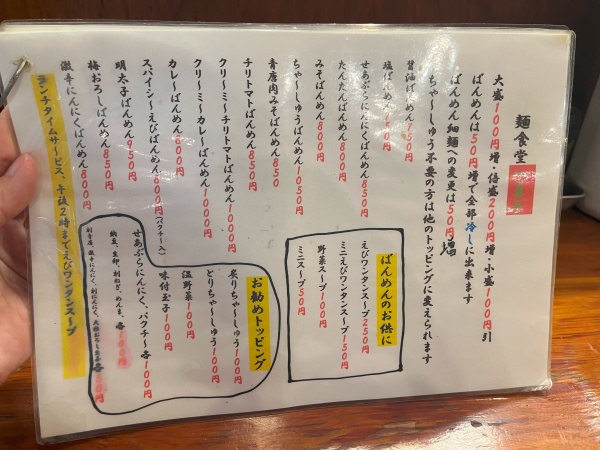 麺食堂
大盛100円増/倍盛200円増、小盛100円引
ばんめんは50円増で全部冷しに出来ます
ばんめん細麺への変更は50円増
ちゃ〜しゅう不要の方は他のトッピングに変えられます
醤油ばんめん750円
塩ばんめん750円
せあぶらにんにくばんめん850円
たんたんばんめん800円
みそばんめん800円
ちゃ〜しゅうばんめん1050円
青唐肉みそばんめん850
チリトマトばんめん850円
クリ〜ミ〜チリトマトばんめん1000円
クリ〜ミ〜カレ〜ばんめん1000円
カレ〜ばんめん850円
スパイシ〜えびばんめん800円(パクチ〜入)
明太子ばんめん950円
梅おろしばんめん850円
激辛にんにくばんめん800円
ランチタイムサービス、午後2時までえびワンタンス〜プ
ばんめんのお供に
えびワンタンス〜プ250円
ミニえびワンタンス〜プ150円
野菜ス〜プ100円
ミニス〜プ50円
お勧めトッピング
炙りちゃ〜しゅう100円
とりちゃ〜しゅう100円
温野菜100円
味付玉子100円
せあぶらにんにく、パクチ〜各100円
納豆、生卵、刻ねぎ、めんま、各100円
刻青唐、激辛にんにく、刻にんにく、大根おろし
各50円